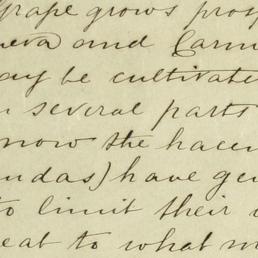 grape grows prosp
neva and Carm
may be cultivate
n several parts
now the hacen
ndas) have gen
to limit their
eat to what m